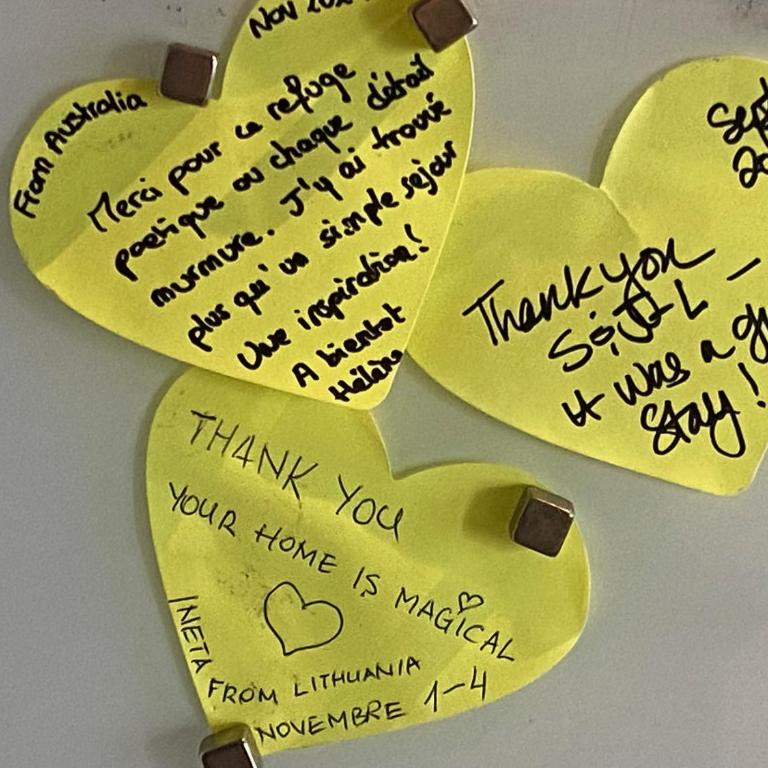 Nov
From Australia
Merci pour ce refuge
poetique ou chaque détail
murmure. J'y ai trouvé
plus qu'un simple séjour
Une inspiration!
A bientot
Hélène
Sept
Thank you
It was a
stay!
THANK YOU
YOUR HOME IS MAGICAL
INETA
FROM LITHUANIA
NOVEMBRE 1-4